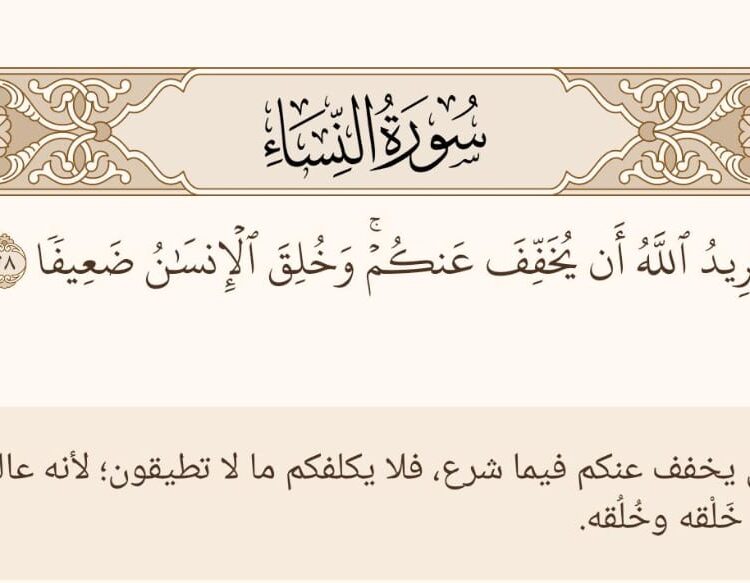 سُورَةُ النِّسَاءِ
ٱللَّهُ أَن يُخَفِّفَ عَنكُمۡۚ وَخُلِقَ ٱلۡإِنسَٰنُ ضَعِيفٗا
يخفف عنكم فيما شرع، فلا يكلفكم ما لا تطيقون؛ لأنه
خَلْقه وخُلُقه.